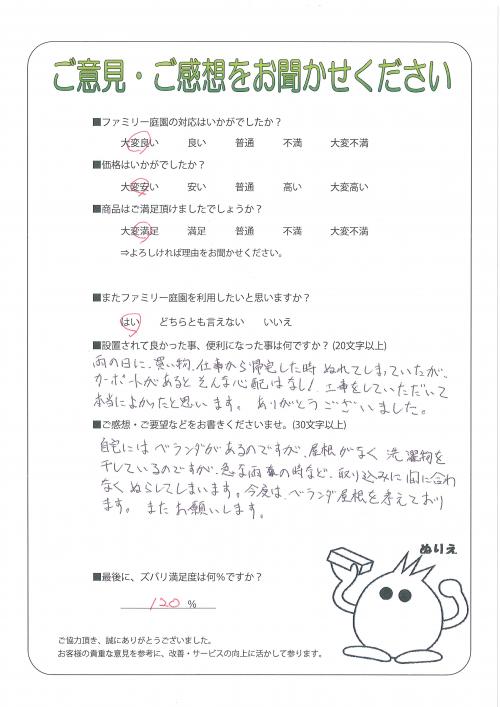 ご意見・ご感想をお聞かせください
■ファミリー庭園の対応はいかがでしたか？
大変良い 良い 普通 不満 大変不満
■価格はいかがでしたか？
大変安い 安い 普通 高い 大変高い
■商品はご満足頂けましたでしょうか？
大変満足 満足 普通 不満 大変不満
⇒よろしければ理由をお聞かせください。
■またファミリー庭園を利用したいと思いますか？
はい どちらとも言えない いいえ
■設置されて良かった事、便利になった事は何ですか？(20文字以上)
雨の日に、買い物、仕事から帰宅した時 ぬれてしまっていたが、
カーポートがあると そんな心配はなし! 工事をしていただいて
本当によかったと思います。 ありがとうございました。
■ご感想・ご要望などをお書きくださいませ。(30文字以上)
自宅には ベランダがあるのですが、屋根がなく 洗濯物を
干しているのですが、急な雨の時など、取り込みに間に合わ
なくぬらしてしまいます。今度は ベランダ屋根を考えており
ます。 またお願いします。
ぬりえ
■最後に、ズバリ満足度は何％ですか？
120 %
ご協力頂き、誠にありがとうございました。
お客様の貴重な意見を参考に、改善・サービスの向上に活かして参ります。